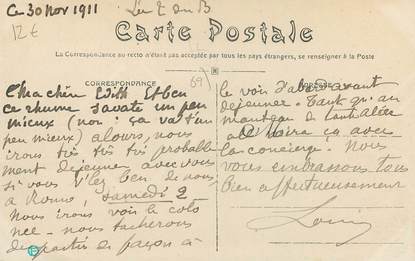 Ce 30 Nov 1911
12 €
Carte Postale
La Correspondance au recto n'étant pas acceptée par tous les pays étrangers, se renseigner à la Poste
CORRESPONDANCE
69
Ma chère Edith Et ben
ce rhume savate un peu
mieux (non : ça va t'un
peu mieux) alours, nous
irons tré, tré, tré probable
ment dejeuner avec vous
si vous v'lez ben de nous
à Rono, samedi 2
Nous irons voir le colo
nel - nous tacherons
de partir de façon à
le voir avant
dejeuner - Tant qu'au
manteau de
ça avec
la concierge. Nous
vous embrassons tous
ben affectueusement
Louis